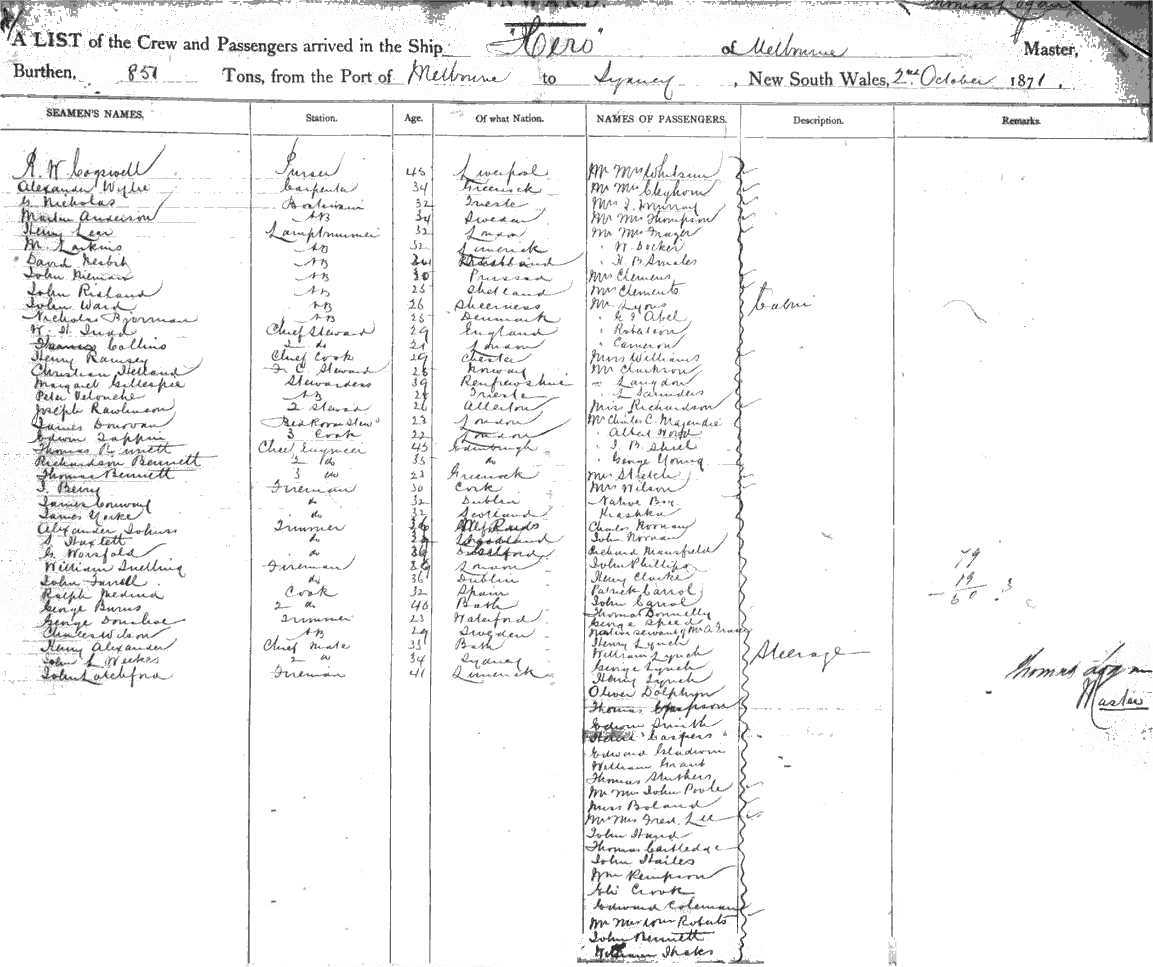 INWARD.
A LIST of the Crew and Passengers arrived in the Ship "Hero" of Melbourne Master,
Burthen, 851 Tons, from the Port of Melbourne to Sydney, New South Wales, 2nd October 1871.
SEAMEN'S NAMES. Station. Age. Of what Nation. NAMES OF PASSENGERS. Description. Remarks.
R. W. Cogswell Purser 45 Liverpool Mr Mrs
Alexander Wylie Carpenter 34 Greenock Mr Mrs Cleghorn
G. Nicholas Boatswain 32 Trieste Mrs J. Murray
Martin Anderson AB 34 Sweden Mr Mrs Thompson
Henry Lear Lamptrimmer 32 London Mr Mrs
M. Larkins AB 32 Limerick " W Docker
David Nesbit AB " H B Smales
John Nieman AB 30 Prussia Mrs Clemens
John Risland AB 25 Shetland Mrs Clements
John Ward AB 26 Sheerness Mr Lyons Cabin
Nicholas Bjorman AB 25 Denmark " G F Abel
W. H. Chief Steward 29 England " Robatson
Thomas Collins 2 do 21 London " Cameron
Henry Ramsey Chief Cook 29 Chester Miss Williams
Christian Helland F. C. Steward 25 Norway Mr Clarkson
Margaret Gillespie Stewardess 39 Renfrewshire " Langdon
Peter Velonche AB 28 Trieste " Saunders
Joseph Rawlinson 2 Steward 26 Allerton Miss Richardson
James Donovan Bed Room Stewd 23 London Mr Charles C. Majendie
Edwin Tappin 3 Cook 22 London " Albert Wood
Thomas Bennett Chief Engineer 45 Edinburgh " J. B. Shiel
Richardson Bennett 2 do 35 do " George Young
Thomas Bennett 3 do 25 Greenock Mrs Stretch
J. Berry Fireman 30 Cork Mrs Wilson
James Conway do 32 Dublin Native Boy
James Yorke do 32 Scotland
Alexander Trimmer Charles Noonan
J. Haxlett do John Noonan
G. Worsfold do Richard Mansfield
William Snelling Fireman London John Phillips 79
John Farrell do 36 Dublin Henry Clarke 19
Ralph Medina Cook 32 Spain Patrick Carrol 60
George Burns 2 do 40 Bath John Carrol
George Donahoe Trimmer 23 Waterford Thomas Donnelly
George Speed
Charles Wilson AB 29 Sweden Native servant of Mr A. Tracey
Henry Alexander Chief Mate 35 Bath Henry Lynch
John L Weekes 2 do 34 Sydney William Lynch Steerage
John Latchford Fireman 41 Limerick George Lynch
Henry Lynch
Oliver Dolphyn
Thomas
Edwin Smith
"Caspers"
Edward Gladwin
William Grant
Thomas Struthers
Mr Mrs John Poole
Miss Boland
Mr Mrs Fred. Lee
John Hand
Thomas Cartledge
John Hailes
Wm Kempson
Eli Crook
Edward Coleman
Mr Mrs Wm Roberts
John Bennett
William Thaks
Thomas Logan
Master